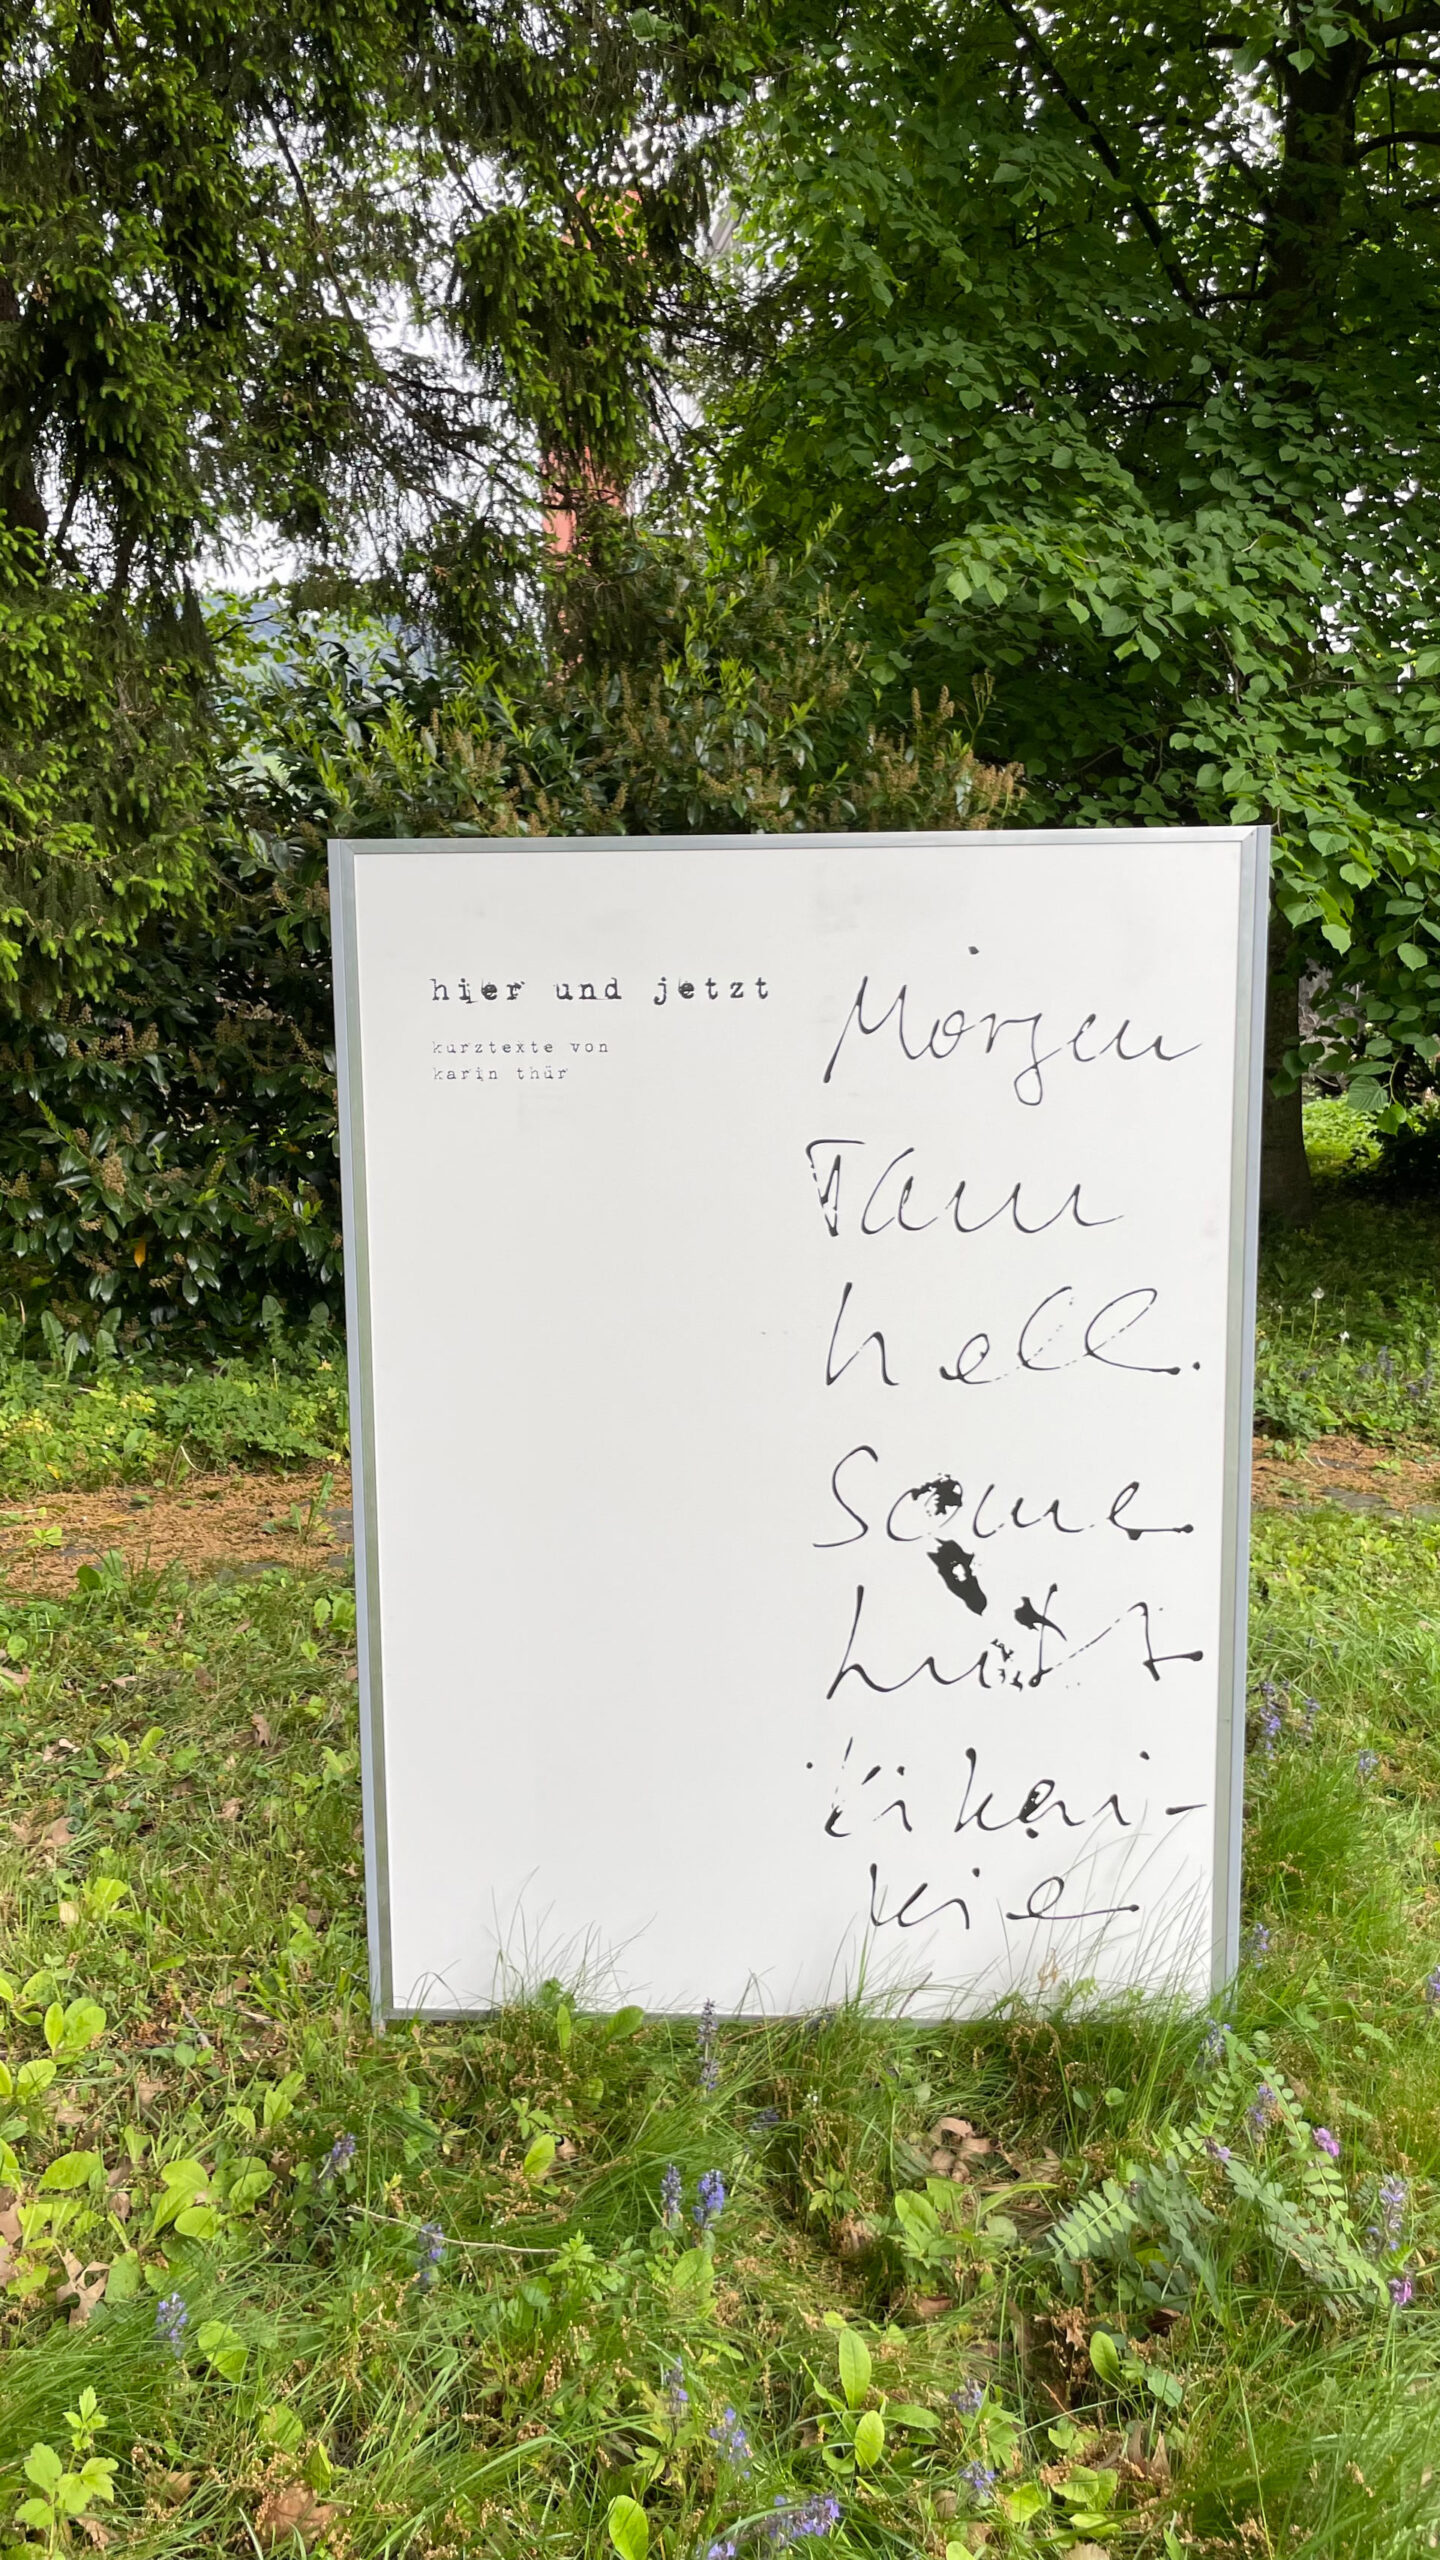 hier und jetzt
kurztexte von
karin thür
Morgen
hell.
Sonne
Kikeri-
kie